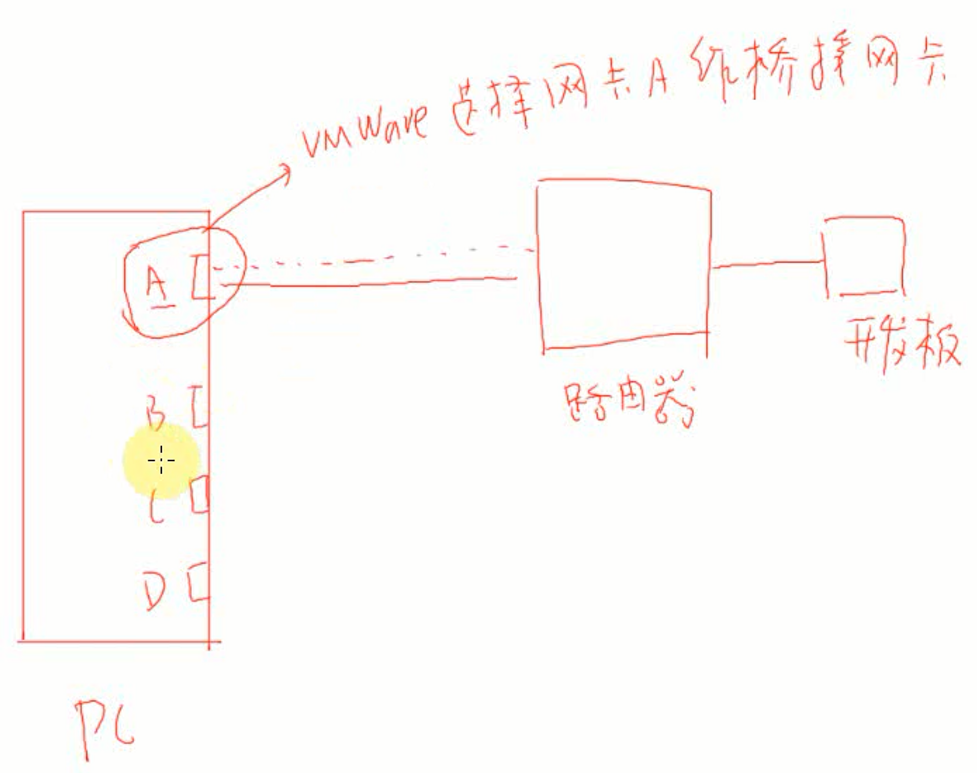 VMWare 选择网卡A 作桥接网卡
A
B
C
D
路由器
开发板
PC